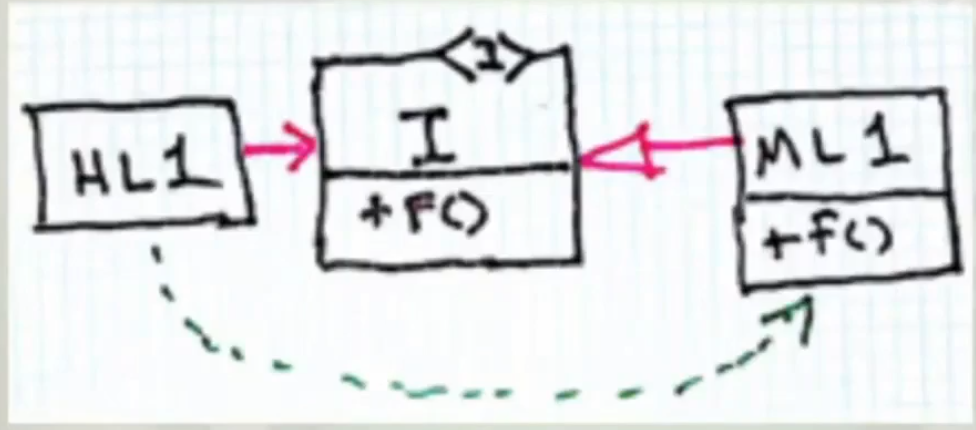 <I>
HL1
I
ML1
+F()
+f()